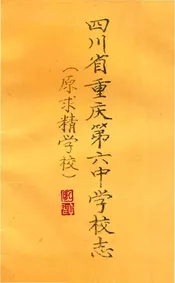 四川省重庆第六中学校志
（原求精学校）